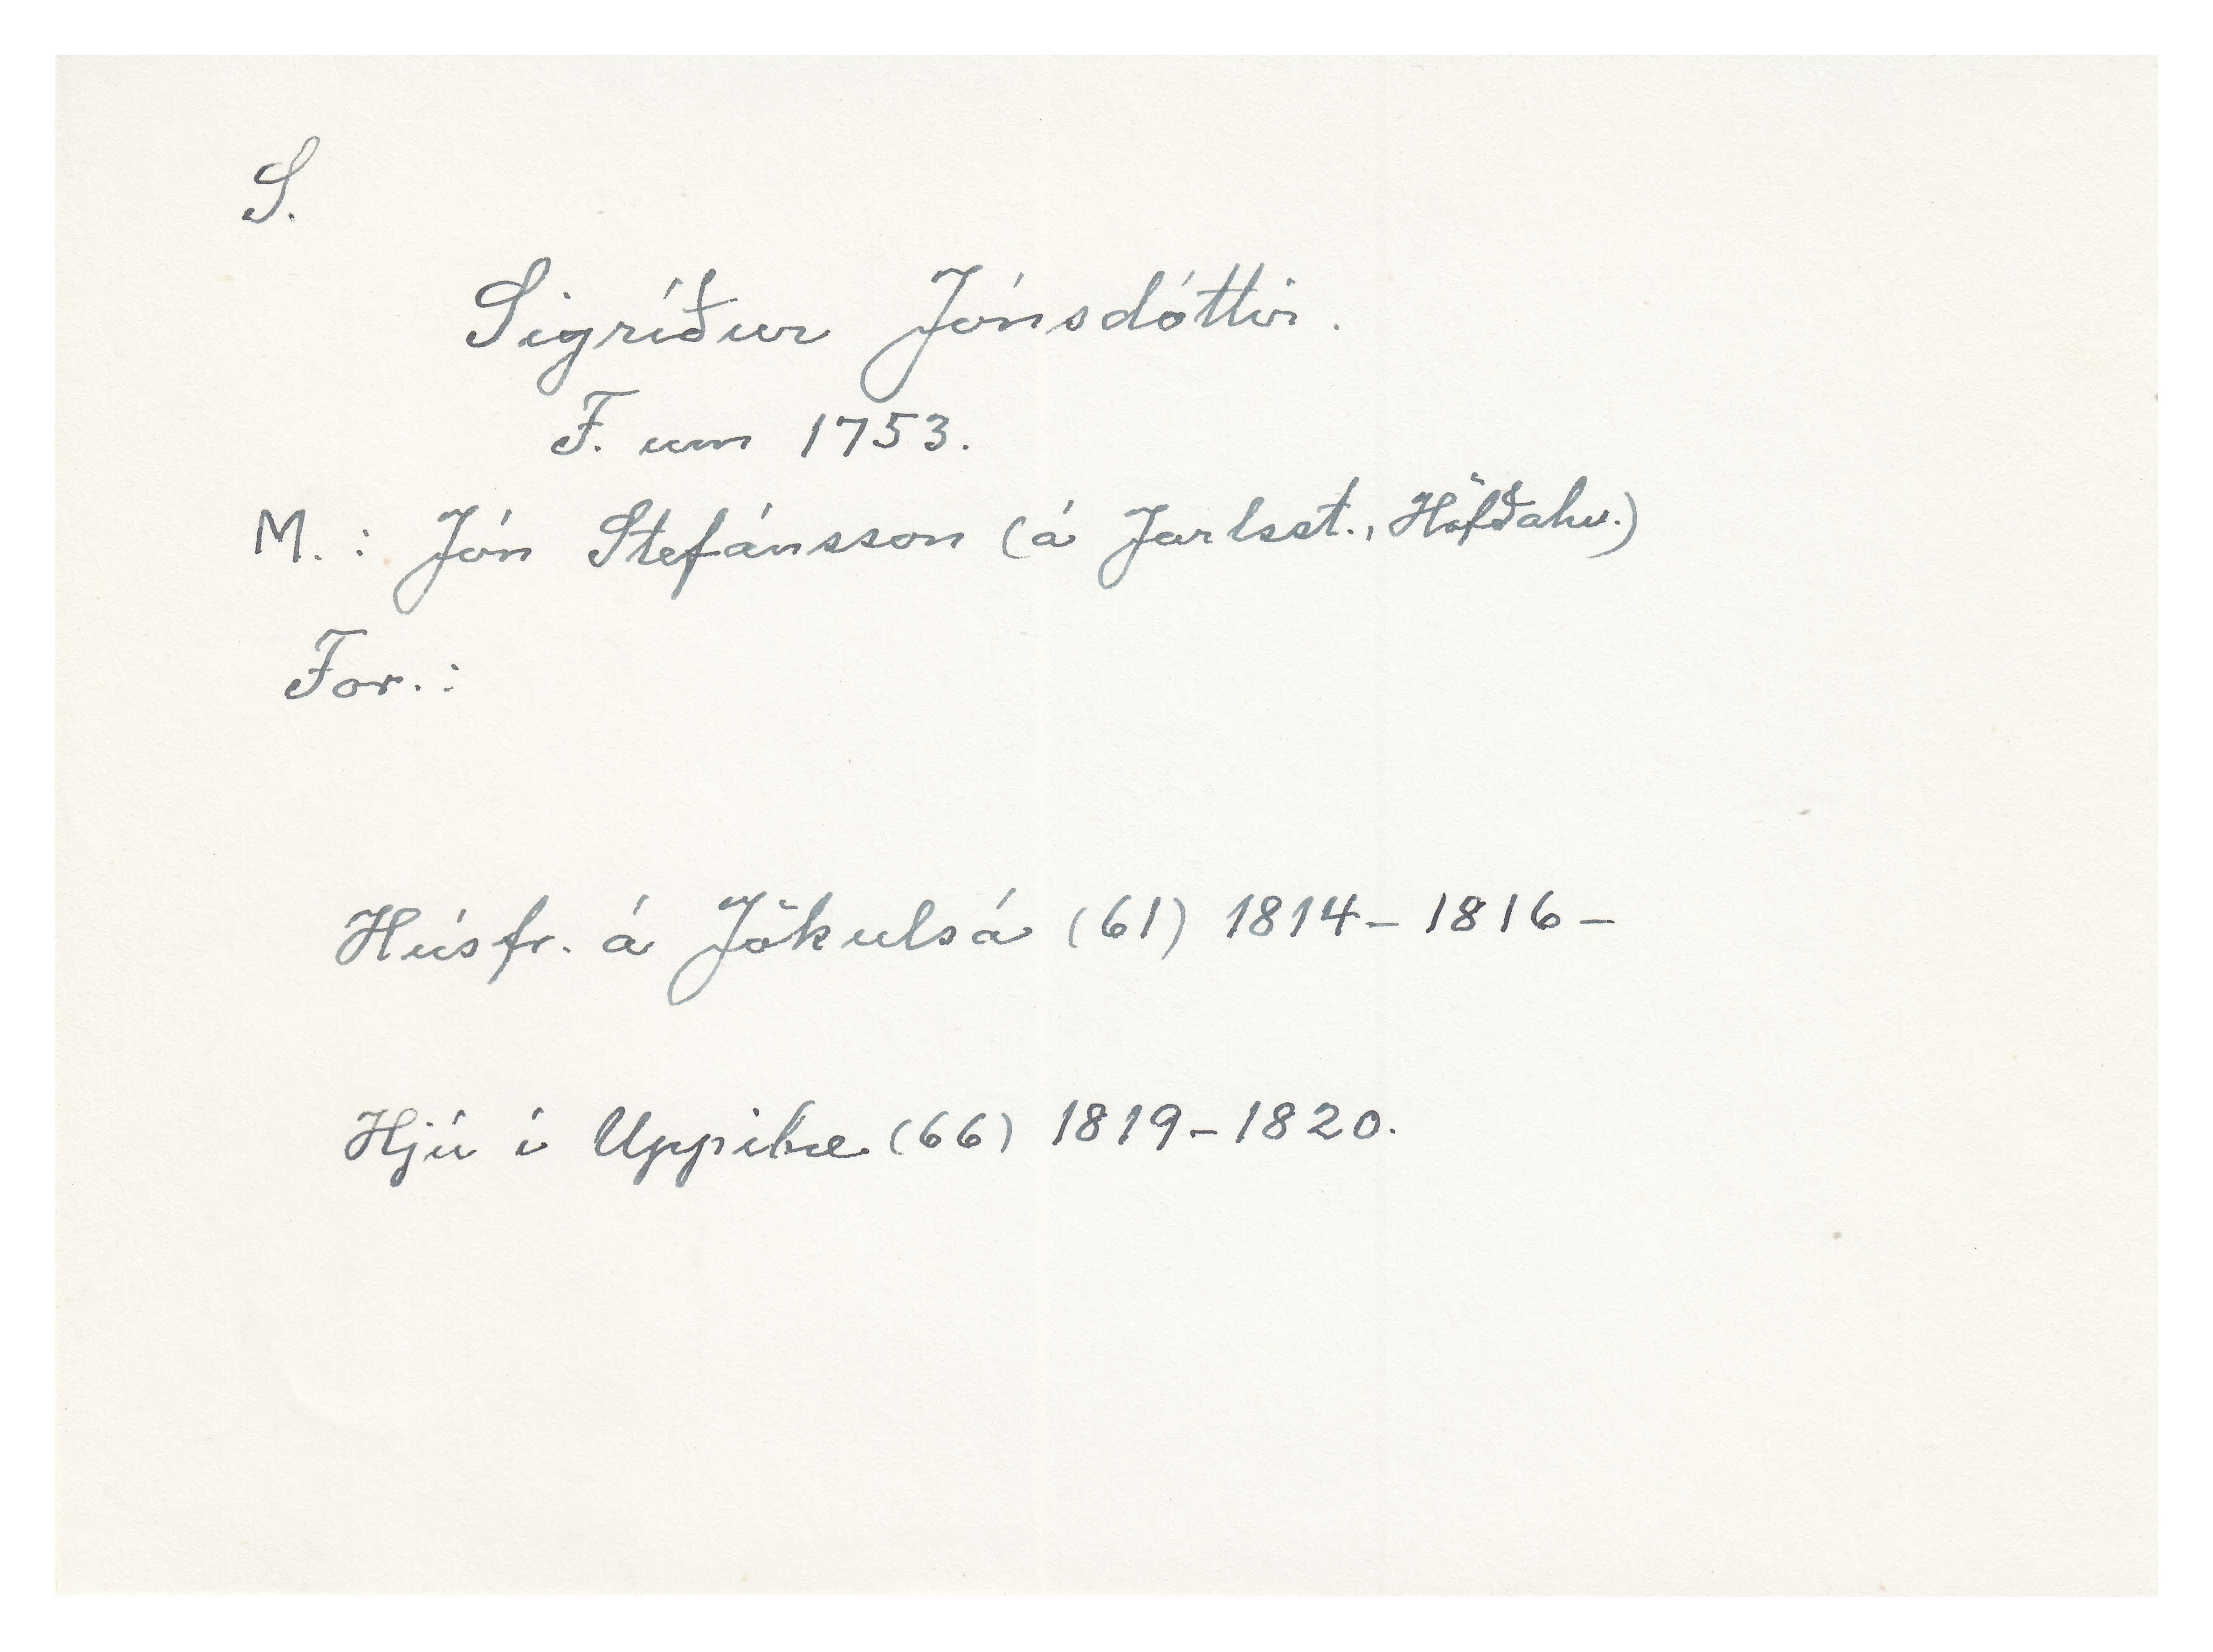 S.
Sigríður Jónsdóttir.
F. um 1753.
M.: Jón Stefánsson (á Jarlsst., Höfðahv.)
For.:
Húsfr. á Jökulsá (61) 1814-1816-
Hjú í Uppibæ (66) 1819-1820.